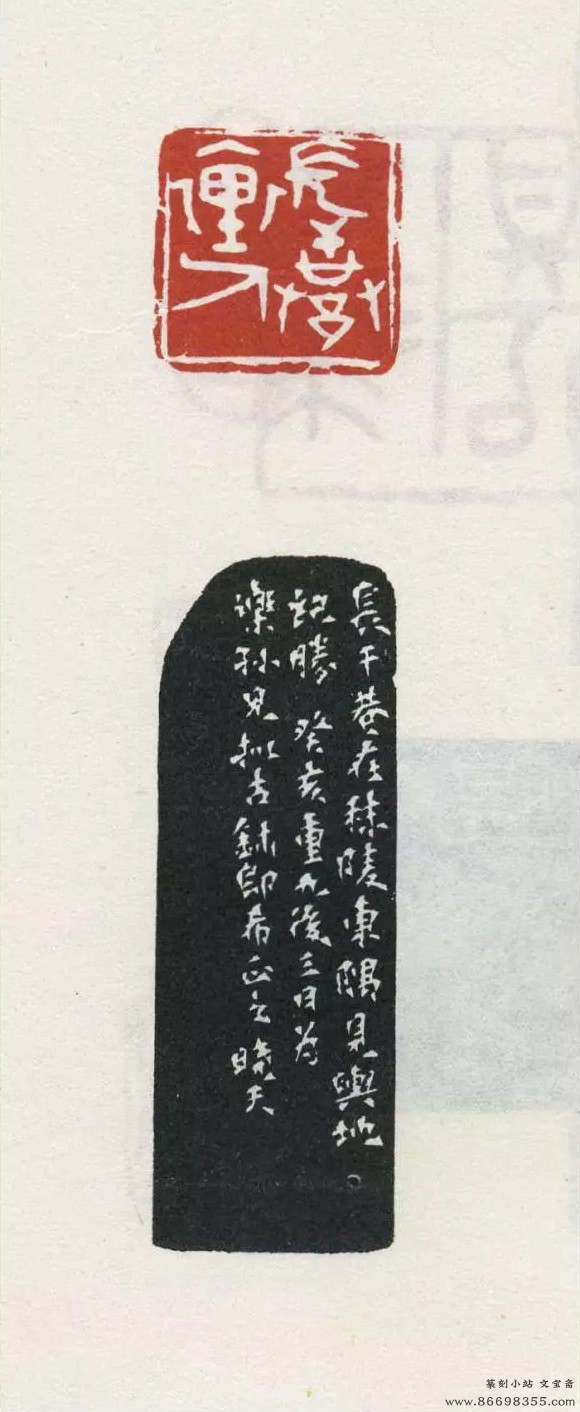 長干巷
長干巷在秣陵東隅見輿地。
記勝 癸亥重九後三日為
樂孫兄拟古鉥即希正之 曉天
篆刻小站 文宝斋
www.86698355.com